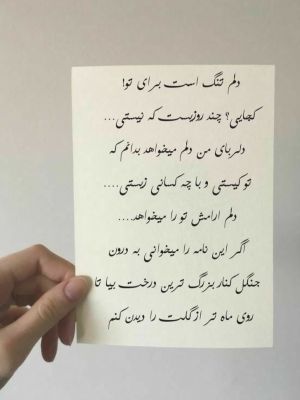 دلم تنگ است برای تو!
کجایی؟ چند روزیست که نیستی...
دلربای من دلم میخواهد بدانم که
تو کیستی و با چه کسانی زیستی....
دلم ارامش تو را میخواهد....
اگر این نامه را میخوانی به درون
جنگل کنار بزرگ ترین درخت بیا تا
روی ماه تر از گلت را دیدن کنم